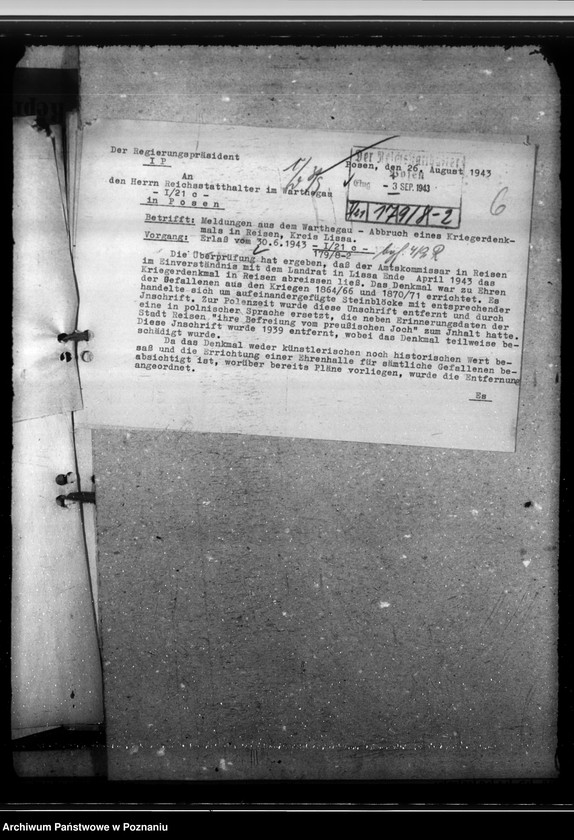 Der Regierungspräsident
I P
Posen, den 26. August 1943
An
den Herrn Reichsstatthalter im Warthegau
- I/21 c -
in Posen
Der Reichsstatthalter
Posen
Eing. - 3 SEP. 1943
179/8-2
6
Betrifft: Meldungen aus dem Warthegau - Abbruch eines Kriegerdenk-
mals in Reisen, Kreis Lissa.
Vorgang: Erlaß vom 30.6.1943 - I/21 c -
179/8-2
Die Überprüfung hat ergeben, daß der Amtskommissar in Reisen
im Einverständnis mit dem Landrat in Lissa Ende April 1943 das
Kriegerdenkmal in Reisen abreissen ließ. Das Denkmal war zu Ehren
der Gefallenen aus den Kriegen 1864/66 und 1870/71 errichtet. Es
handelte sich um aufeinandergefügte Steinblöcke mit entsprechender
Jnschrift. Zur Polenzeit wurde diese Unschrift entfernt und durch
eine in polnischer Sprache ersetzt, die neben Erinnerungsdaten der
Stadt Reisen "ihre Befreiung vom preußischen Joch" zum Jnhalt hatte.
Diese Jnschrift wurde 1939 entfernt, wobei das Denkmal teilweise be-
schädigt wurde.
Da das Denkmal weder künstlerischen noch historischen Wert be-
saß und die Errichtung einer Ehrenhalle für sämtliche Gefallenen be-
absichtigt ist, worüber bereits Pläne vorliegen, wurde die Entfernung
angeordnet.
Es
Archiwum Państwowe w Poznaniu